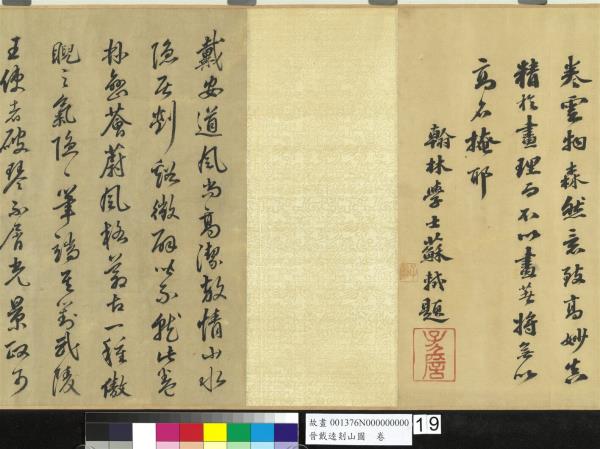 卷雲物森然意致高妙真
精於畫理而不以畫著將無以
高名掩耶
翰林學士蘇軾題
子瞻
戴安道風尚高潔放情山水
隱居剡谿徵辟不就此卷
林巒薈蔚風格蒼古一種傲
睨之氣隱隱筆端其對武陵
王使者破琴不屑光景政可
故畫 001376N000000000
晉戴逵剡山圖 卷
19